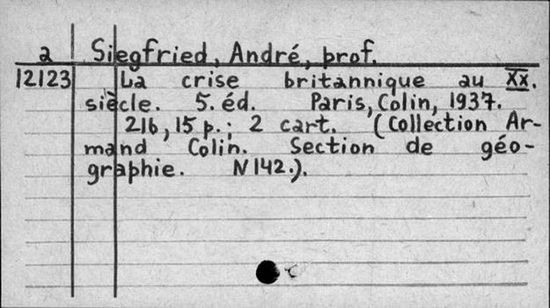 a Siegfried, André, prof.
12123 La crise britannique au XX.
siècle. 5. éd. Paris, Colin, 1937.
216, 15 p.; 2 cart. (Collection Ar-
mand Colin. Section de géo-
graphie. N142.).